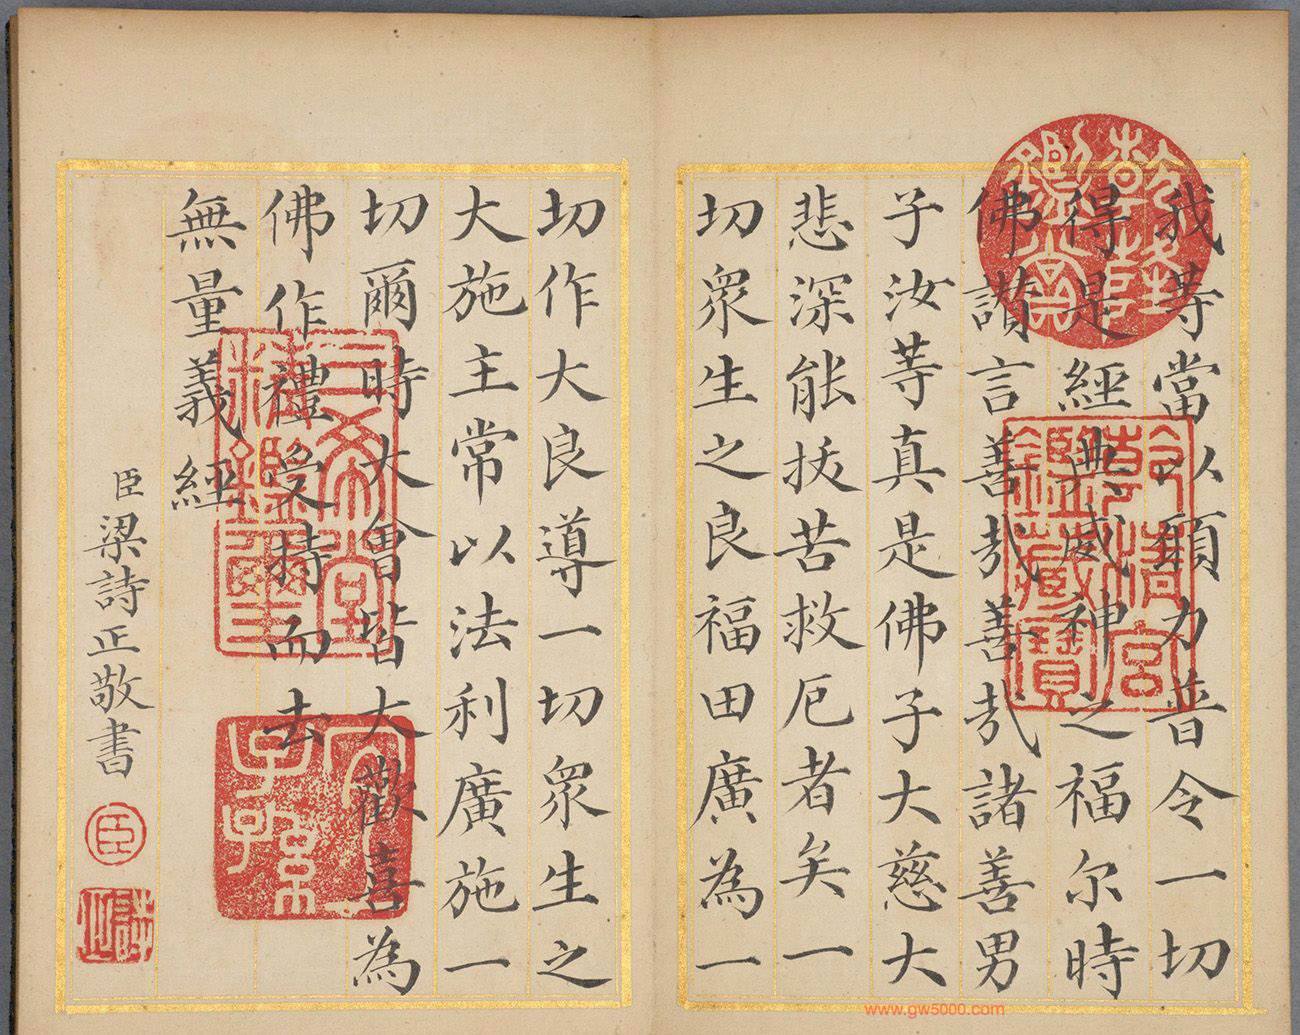 我等當以願力普令一切
得是經典威神之福尔時
佛讃言善哉善哉諸善男
子汝等真是佛子大慈大
悲深能拔苦救厄者矣一
切眾生之良福田廣為一
切作大良導一切眾生之
大施主常以法利廣施一
切爾時大會皆大歡喜為
佛作禮受持而去
無量義經
臣梁詩正敬書
乾隆鑑賞
乾清宮鑑藏寶
三希堂精鑑璽
宜子孫
臣
詩正
www.gw5000.com